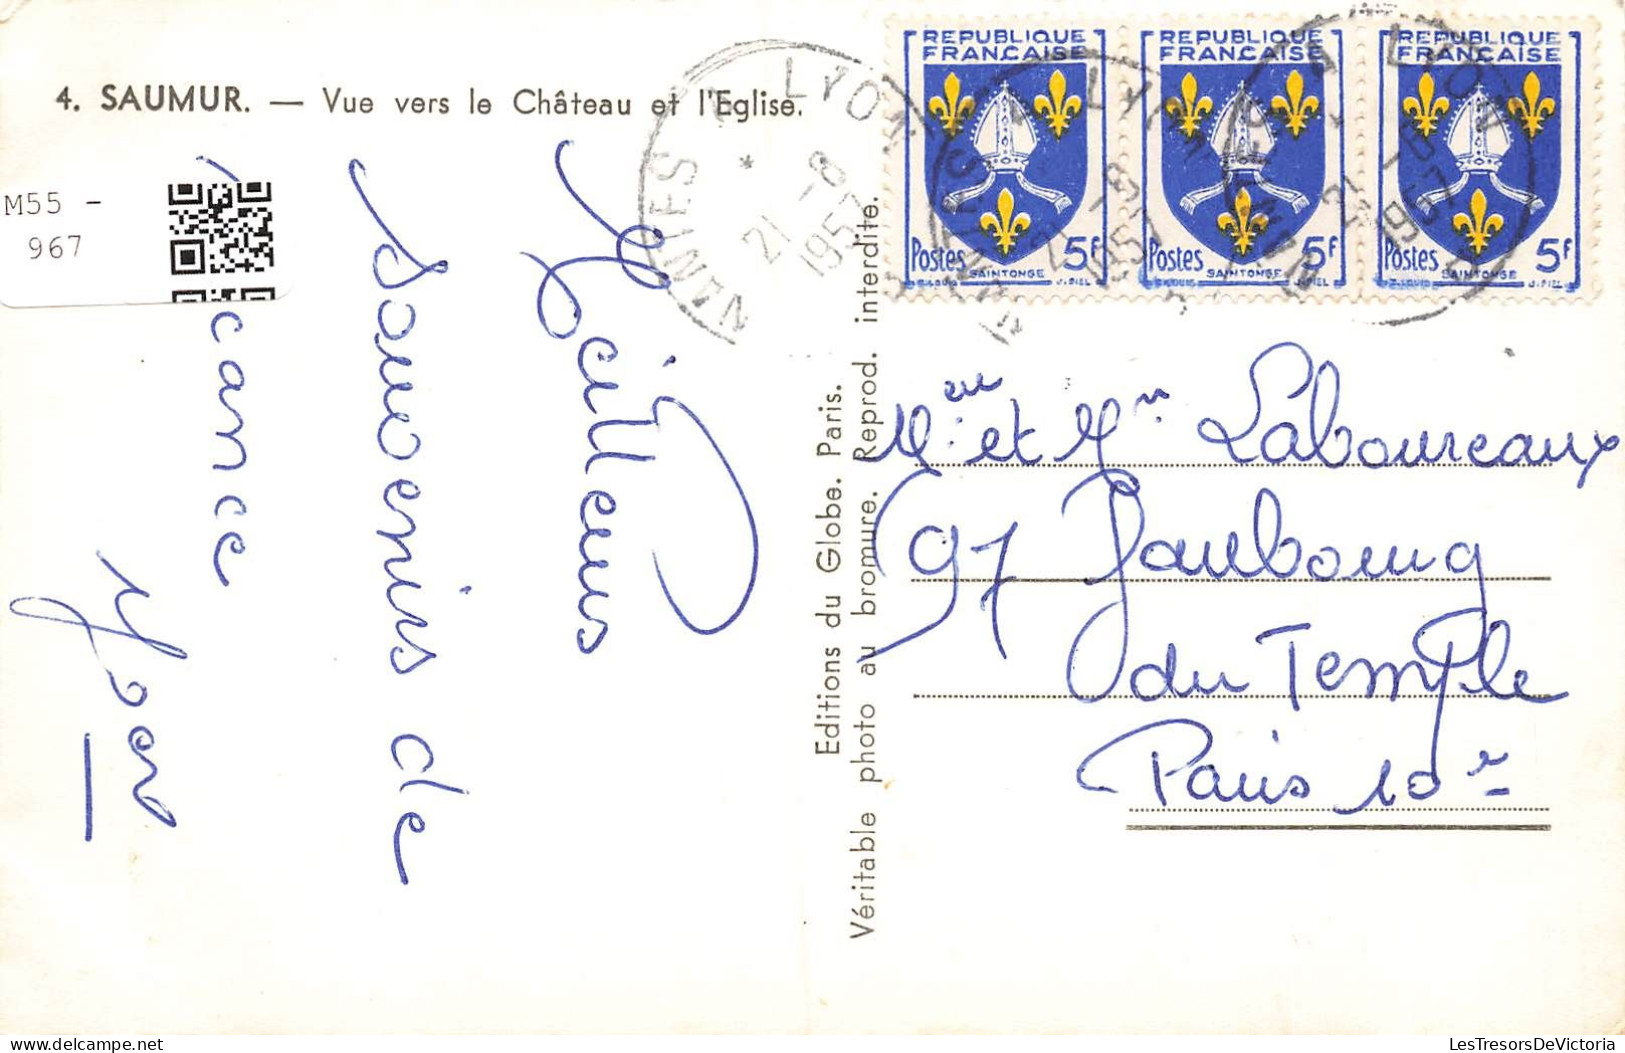 4. SAUMUR. — Vue vers le Château et l'Eglise.
M55 -
967
Meilleurs
souvenirs de
cance
Yvon
Editions du Globe. Paris.
Véritable photo au bromure. Reprod. interdite.
LYON
NANTES
21 - 8
1957
REPUBLIQUE
FRANÇAISE
Postes 5f
SAINTONGE
J. PIEL
REPUBLIQUE
FRANÇAISE
Postes 5f
SAINTONGE
J. PIEL
REPUBLIQUE
FRANÇAISE
Postes 5f
SAINTONGE
J. PIEL
et Laboureaux
97 Faubourg
du Temple
Paris 10e
LesTresorsDeVictoria